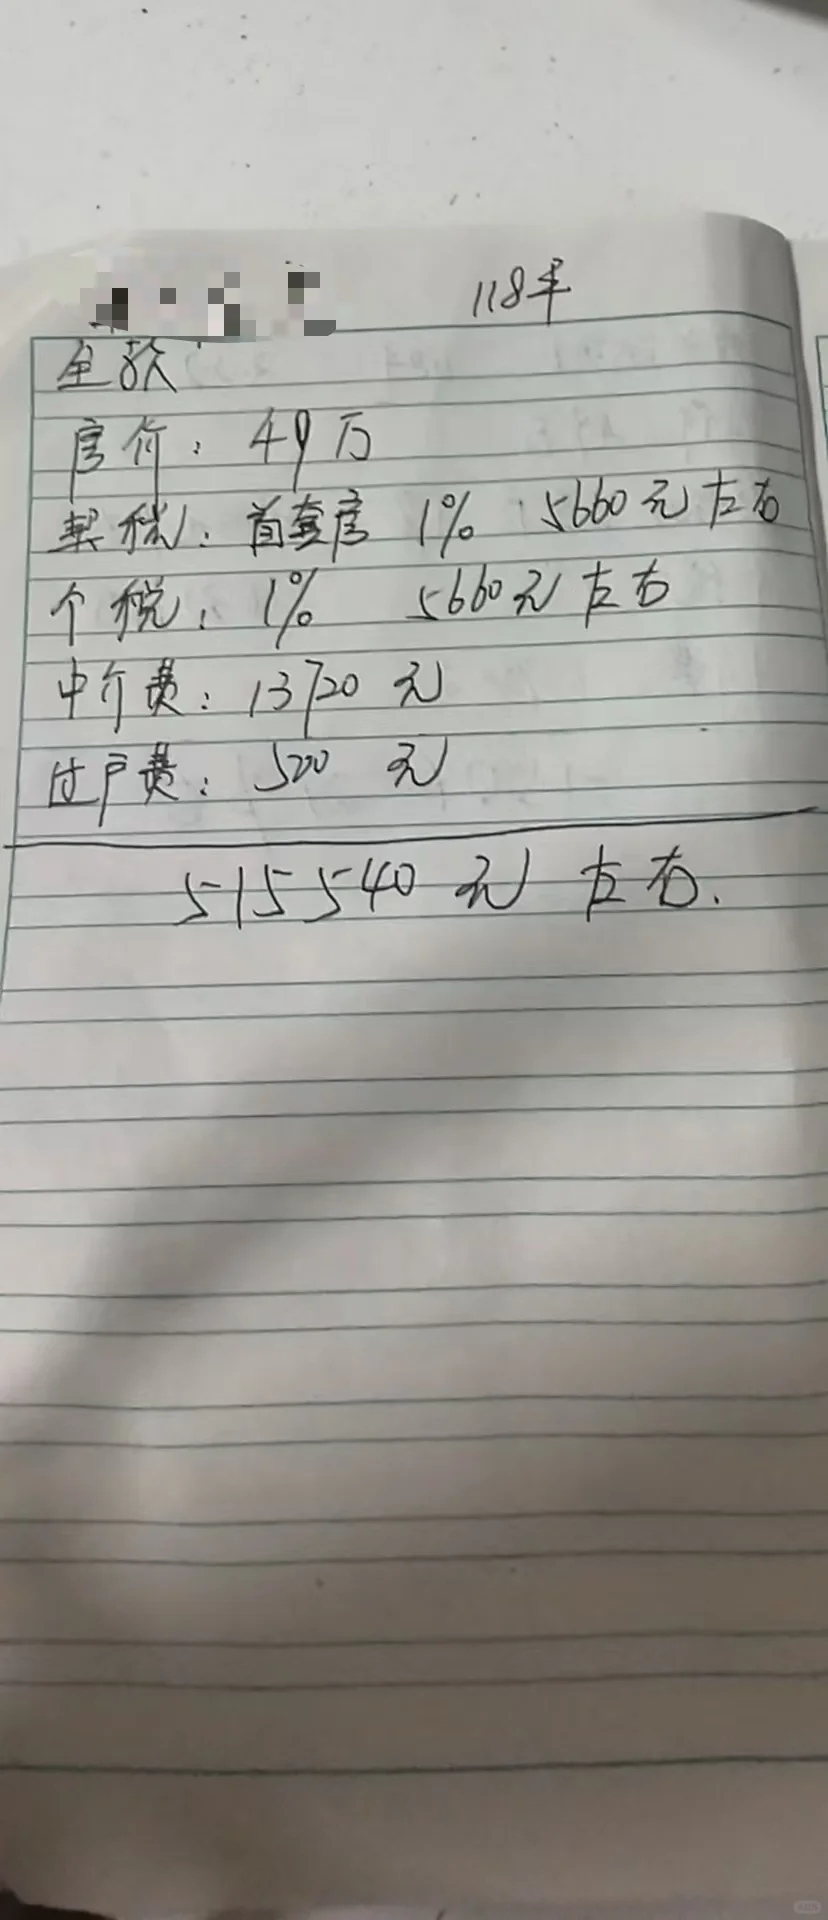 118平
全款
房价：49万
契税：首套房 1% 5660元左右
个税：1% 5660元左右
中介费：13720元
过户费：500元
515540元左右.